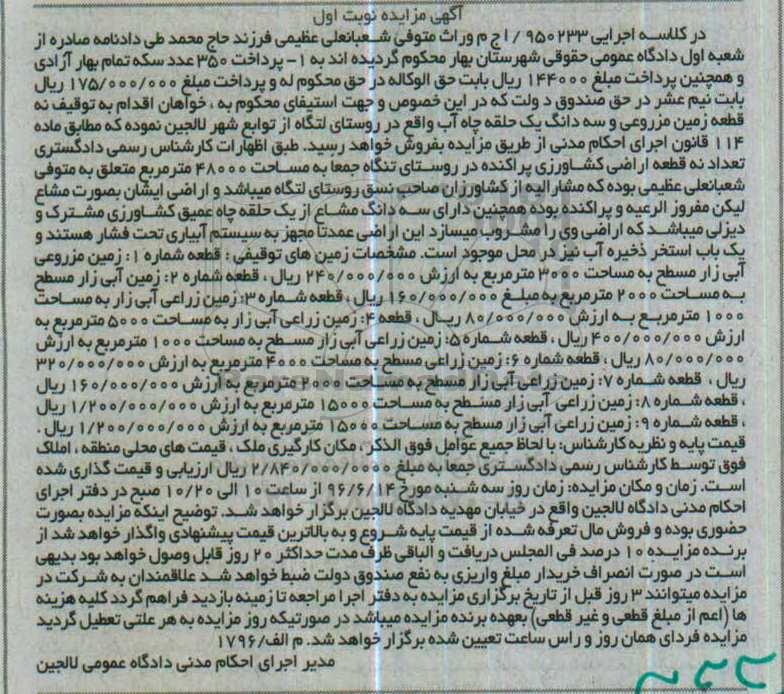 آگهی مزایده نوبت اول
در کلاسه اجرایی ۹۵۰۲۳۳ / اج م وراث متوفی شعبانعلی عظیمی فرزند حاج محمد طی دادنامه صادره از
شعبه اول دادگاه عمومی حقوقی شهرستان بهار محکوم گردیده اند به ۱- پرداخت ۳۵۰ عدد سکه تمام بهار آزادی
و همچنین پرداخت مبلغ ۱۴۴۰۰۰ ریال بابت حق الوکاله در حق محکوم له و پرداخت مبلغ ۱۷۵/۰۰۰/۰۰۰ ریال
بابت نیم عشر در حق صندوق د ولت که در این خصوص و جهت استیفای محکوم به ، خواهان اقدام به توقیف نه
قطعه زمین مزروعی و سه دانگ یک حلقه چاه آب واقع در روستای لتگاه از توابع شهر لالجین نموده که مطابق ماده
۱۱۴ قانون اجرای احکام مدنی از طریق مزایده بفروش خواهد رسید. طبق اظهارات کارشناس رسمی دادگستری
تعداد نه قطعه اراضی کشاورزی پراکنده در روستای تنگاه جمعاً به مساحت ۴۸۰۰۰ مترمربع متعلق به متوفی
شعبانعلی عظیمی بوده که مشارالیه از کشاورزان صاحب نسق روستای لتگاه میباشد و اراضی ایشان بصورت مشاع
لیکن مفروز الرعیه و پراکنده بوده همچنین دارای سه دانگ مشاع از یک حلقه چاه عمیق کشاورزی مشترک و
دیزلی میباشد که اراضی وی را مشروب میسازد این اراضی عمدتاً مجهز به سیستم آبیاری تحت فشار هستند و
یک باب استخر ذخیره آب نیز در محل موجود است. مشخصات زمین های توقیفی : قطعه شماره ۱: زمین مزروعی
آبی زار مسطح به مساحت ۳۰۰۰ مترمربع به ارزش ۲۴۰/۰۰۰/۰۰۰ ریال ، قطعه شماره ۲: زمین آبی زار مسطح
به مساحت ۲۰۰۰ مترمربع به مبلغ ۱۶۰/۰۰۰/۰۰۰ ریال ، قطعه شماره ۳: زمین زراعی آبی زار به مساحت
۱۰۰۰ مترمربع به ارزش ۸۰/۰۰۰/۰۰۰ ریال ، قطعه ۴: زمین زراعی آبی زار به مساحت ۵۰۰۰ مترمربع به
ارزش ۴۰۰/۰۰۰/۰۰۰ ریال ، قطعه شماره ۵: زمین زراعی آبی زار مسطح به مساحت ۱۰۰۰ مترمربع به ارزش
۸۰/۰۰۰/۰۰۰ ریال ، قطعه شماره ۶: زمین زراعی مسطح به مساحت ۴۰۰۰ مترمربع به ارزش ۳۲۰/۰۰۰/۰۰۰
ریال ، قطعه شماره ۷: زمین زراعی آبی زار مسطح به مساحت ۲۰۰۰ مترمربع به ارزش ۱۶۰/۰۰۰/۰۰۰ ریال
، قطعه شماره ۸: زمین زراعی آبی زار مسطح به مساحت ۱۵۰۰۰ مترمربع به ارزش ۱/۲۰۰/۰۰۰/۰۰۰ ریال
، قطعه شماره ۹: زمین زراعی آبی زار مسطح به مساحت ۱۵۰۰۰ مترمربع به ارزش ۱/۲۰۰/۰۰۰/۰۰۰ ریال .
قیمت پایه و نظریه کارشناس: با لحاظ جمیع عوامل فوق الذکر ، مکان کارگیری ملک ، قیمت های محلی منطقه ، املاک
فوق توسط کارشناس رسمی دادگستری جمعاً به مبلغ ۲/۸۴۰/۰۰۰/۰۰۰۰ ریال ارزیابی و قیمت گذاری شده
است. زمان و مکان مزایده: زمان روز سه شنبه مورخ ۹۶/۶/۱۴ از ساعت ۱۰ الی ۱۰/۲۰ صبح در دفتر اجرای
احکام مدنی دادگاه لالجین واقع در خیابان مهدیه دادگاه لالجین برگزار خواهد شد. توضیح اینکه مزایده بصورت
حضوری بوده و فروش مال تعرفه شده از قیمت پایه شروع و به بالاترین قیمت پیشنهادی واگذار خواهد شد از
برنده مزایده ۱۰ درصد فی المجلس دریافت و الباقی ظرف مدت حداکثر ۲۰ روز قابل وصول خواهد بود بدیهی
است در صورت انصراف خریدار مبلغ واریزی به نفع صندوق دولت ضبط خواهد شد علاقمندان به شرکت در
مزایده میتوانند ۳ روز قبل از تاریخ برگزاری مزایده به دفتر اجرا مراجعه تا زمینه بازدید فراهم گردد کلیه هزینه
ها (اعم از مبلغ قطعی و غیر قطعی) بعهده برنده مزایده میباشد در صورتیکه روز مزایده به هر علتی تعطیل گردید
مزایده فردای همان روز و راس ساعت تعیین شده برگزار خواهد شد. م الف/۱۷۹۶
مدیر اجرای احکام مدنی دادگاه عمومی لالجین